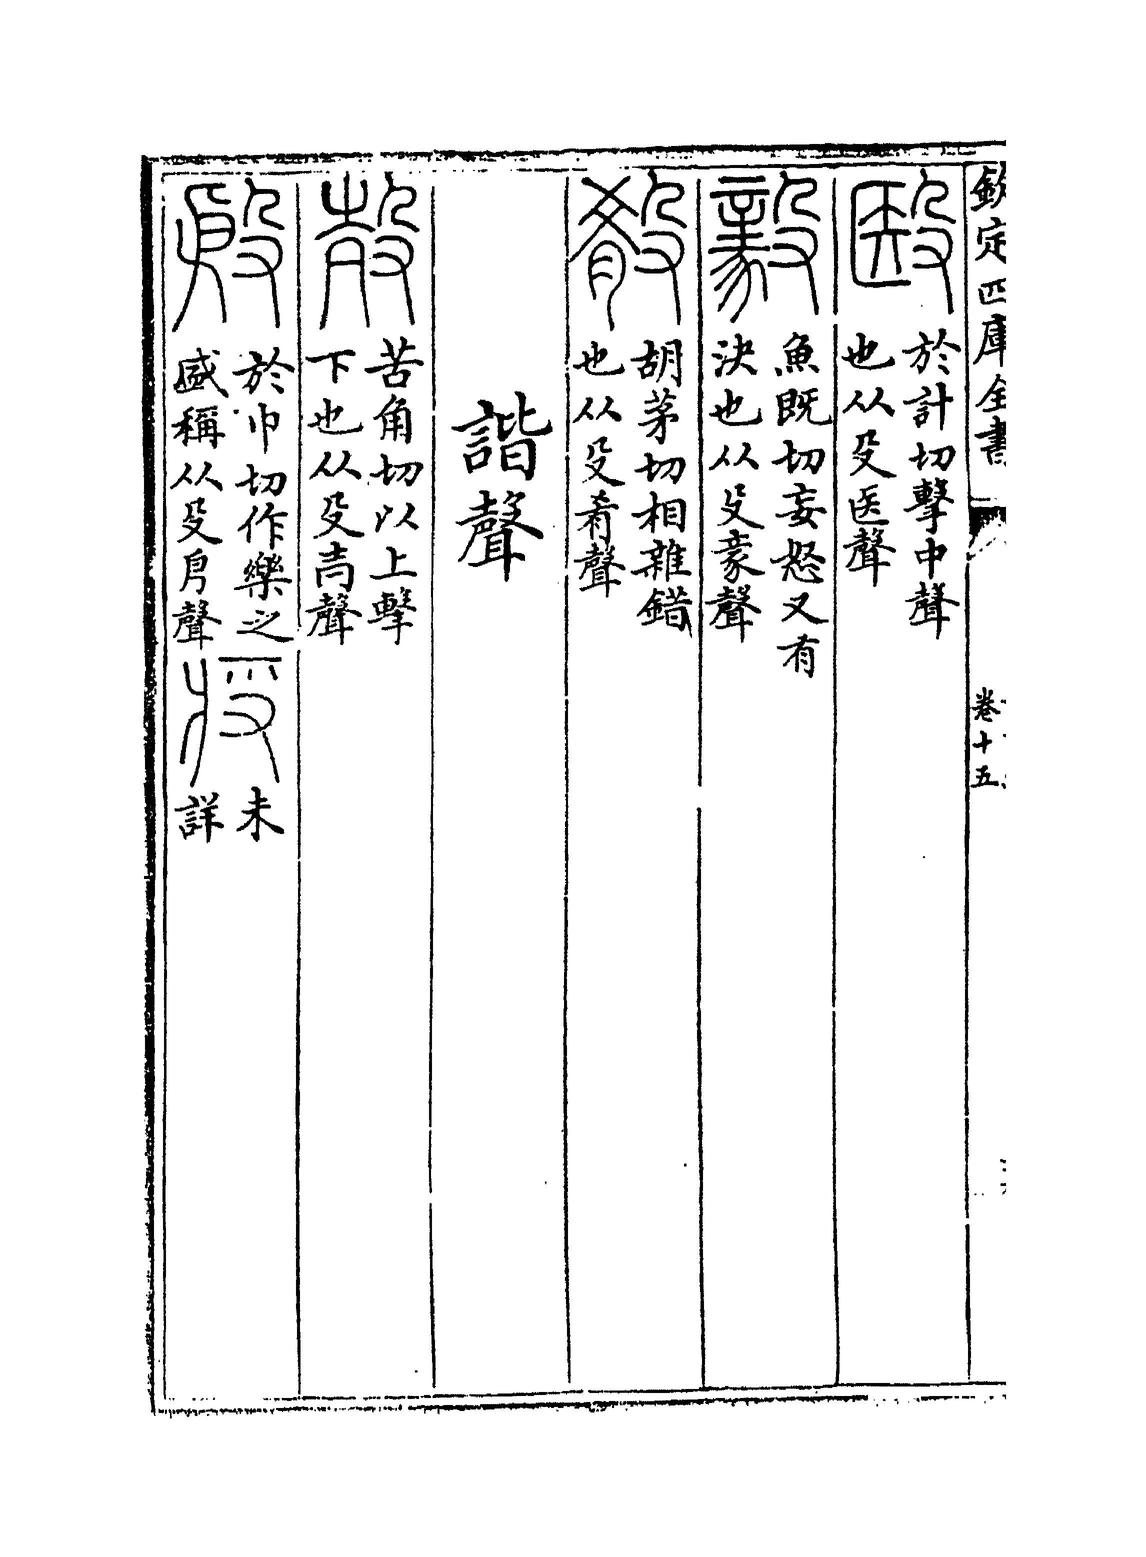 欽定四庫全書
卷十五
殹
於計切擊中聲
也从殳医聲
毅
魚既切妄怒又有
決也从殳豙聲
殽
胡茅切相雜錯
也从殳肴聲
諧聲
㱿
苦角切以上擊
下也从殳𡉉聲
殷
於巾切作樂之
盛稱从殳㐆聲
未
詳